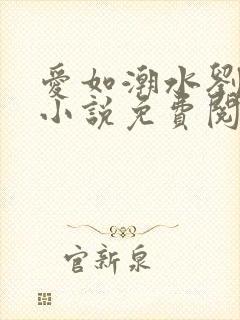 愛如潮水劉
小說免費閱
官新泉